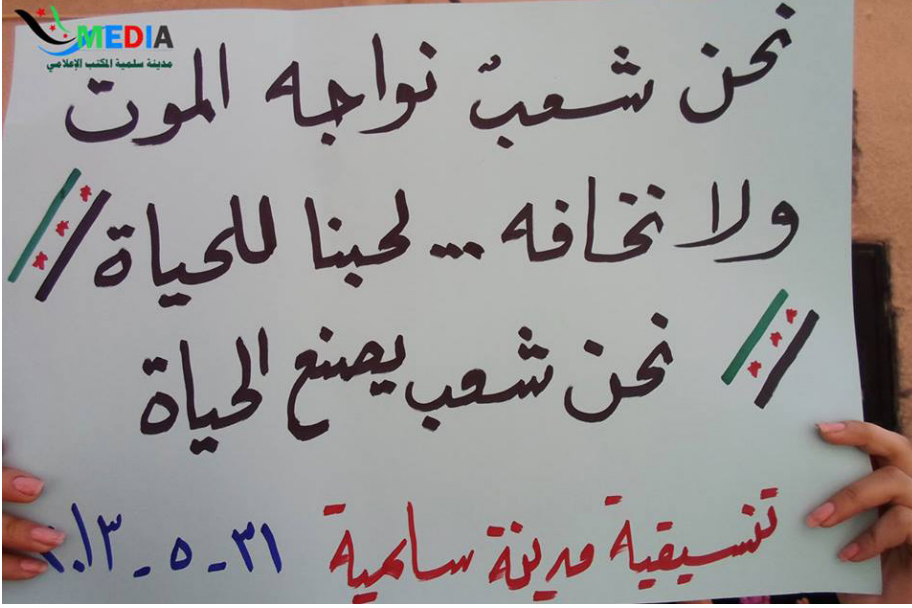 MEDIA
مدينة سلمية المكتب الإعلامي
نحن شعبٌ نواجه الموت
ولا نخافه ... لحبنا للحياة //
// نحن شعب يصنع الحياة
تنسيقية مدينة سلمية
٣١ - ٥ - ٢٠١٣